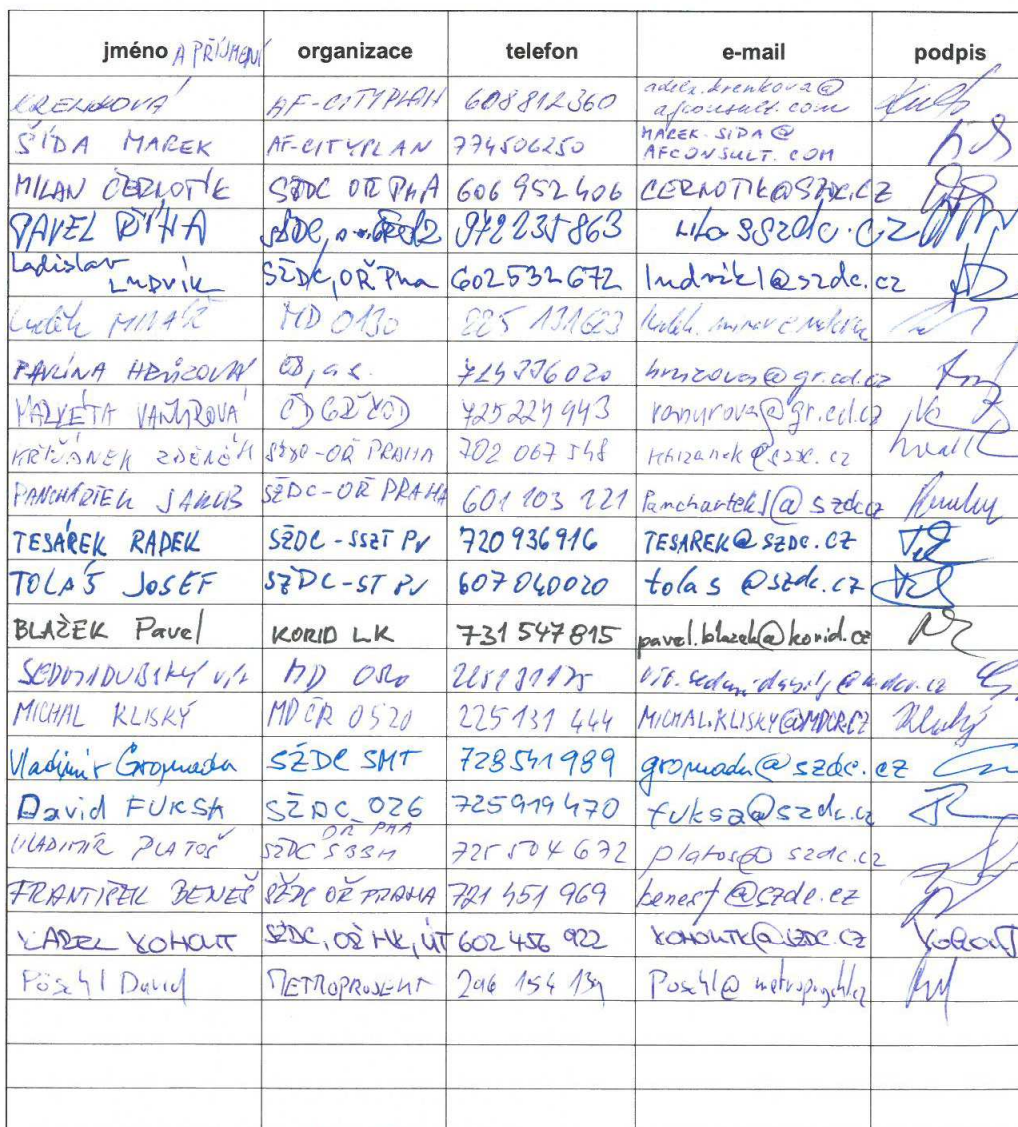 jméno A PŘÍJMENÍ organizace telefon e-mail podpis
KRENKOVÁ AF-CITYPLAN 608812360 adela.krenkova@
afconsult.com
ŠÍDA MAREK AF-CITYPLAN 774506250 MAREK.SIDA@
AFCONSULT.COM
MILAN ČERNOTÍK SŽDC OŘ PHA 606 952 406 CERNOTIK@SZDC.CZ
PAVEL ŘÍHA SŽDC, 972235863
Ladislav
LUDVÍK SŽDC, OŘ Pha 602532672 ludvikl@szdc.cz
Luděk MD 0130 225 131623
PAVLÍNA HRŮZOVÁ ČD, a.s. hruzova@gr.cd.cz
MARKÉTA VAŇUROVÁ ČD GŘ 725229943 vanurova@gr.cd.cz
KŘIŽÁNEK ZDENĚK SŽDC-OŘ PRAHA 702 067 548 krizanek@szdc.cz
PANCHÁRTEK JAKUB SŽDC-OŘ PRAHA 601 103 121 PanchartekJ@szdc.cz
TESÁREK RADEK SŽDC-SSZT PV 720936916 TESAREK@SZDC.CZ
TOLAŠ JOSEF SŽDC-ST PV 607040020 tolas@szdc.cz
BLAŽEK Pavel KORID LK 731 547 815 pavel.blazek@korid.cz
SEDMIDUBSKÝ Vít MD
MICHAL KLISKÝ MDČR 0520 225 131 444 MICHAL.KLISKY@MDCR.CZ
Vladimír Gromada SŽDC SMT 728541989 gromada@szdc.cz
David FUKSA SŽDC O26 725919470 fuksa@szdc.cz
OŘ PHA
VLADIMÍR PLATOŠ SŽDC 725 504 672 platos@szdc.cz
FRANTIŠEK BENEŠ SŽDC OŘ PRAHA 721 451 969 benesf@szdc.cz
KAREL KOHOUT SŽDC, OŘ HK, ÚT 602 456 922 KOHOUTK@SZDC.CZ Kohout
Pöschl David METROPROJEKT 296 154